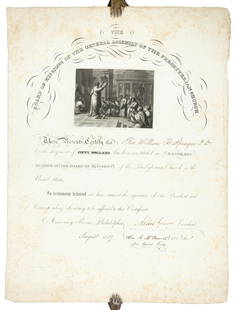 THE
BOARD OF MISSIONS OF THE GENERAL ASSEMBLY OF THE PRESBYTERIAN CHURCH
These Presents Certify that Rev. William B. Sprague D.D.
by the payment of FIFTY DOLLARS has been constituted an HONORARY
MEMBER OF THE BOARD OF MISSIONS of the Presbyterian Church in the
United States
In testimony whereof we have caused the signature of our President and
Corresponding Secretary to be affixed to this Certificate
Missionary Rooms Philadelphia
President
August 1837